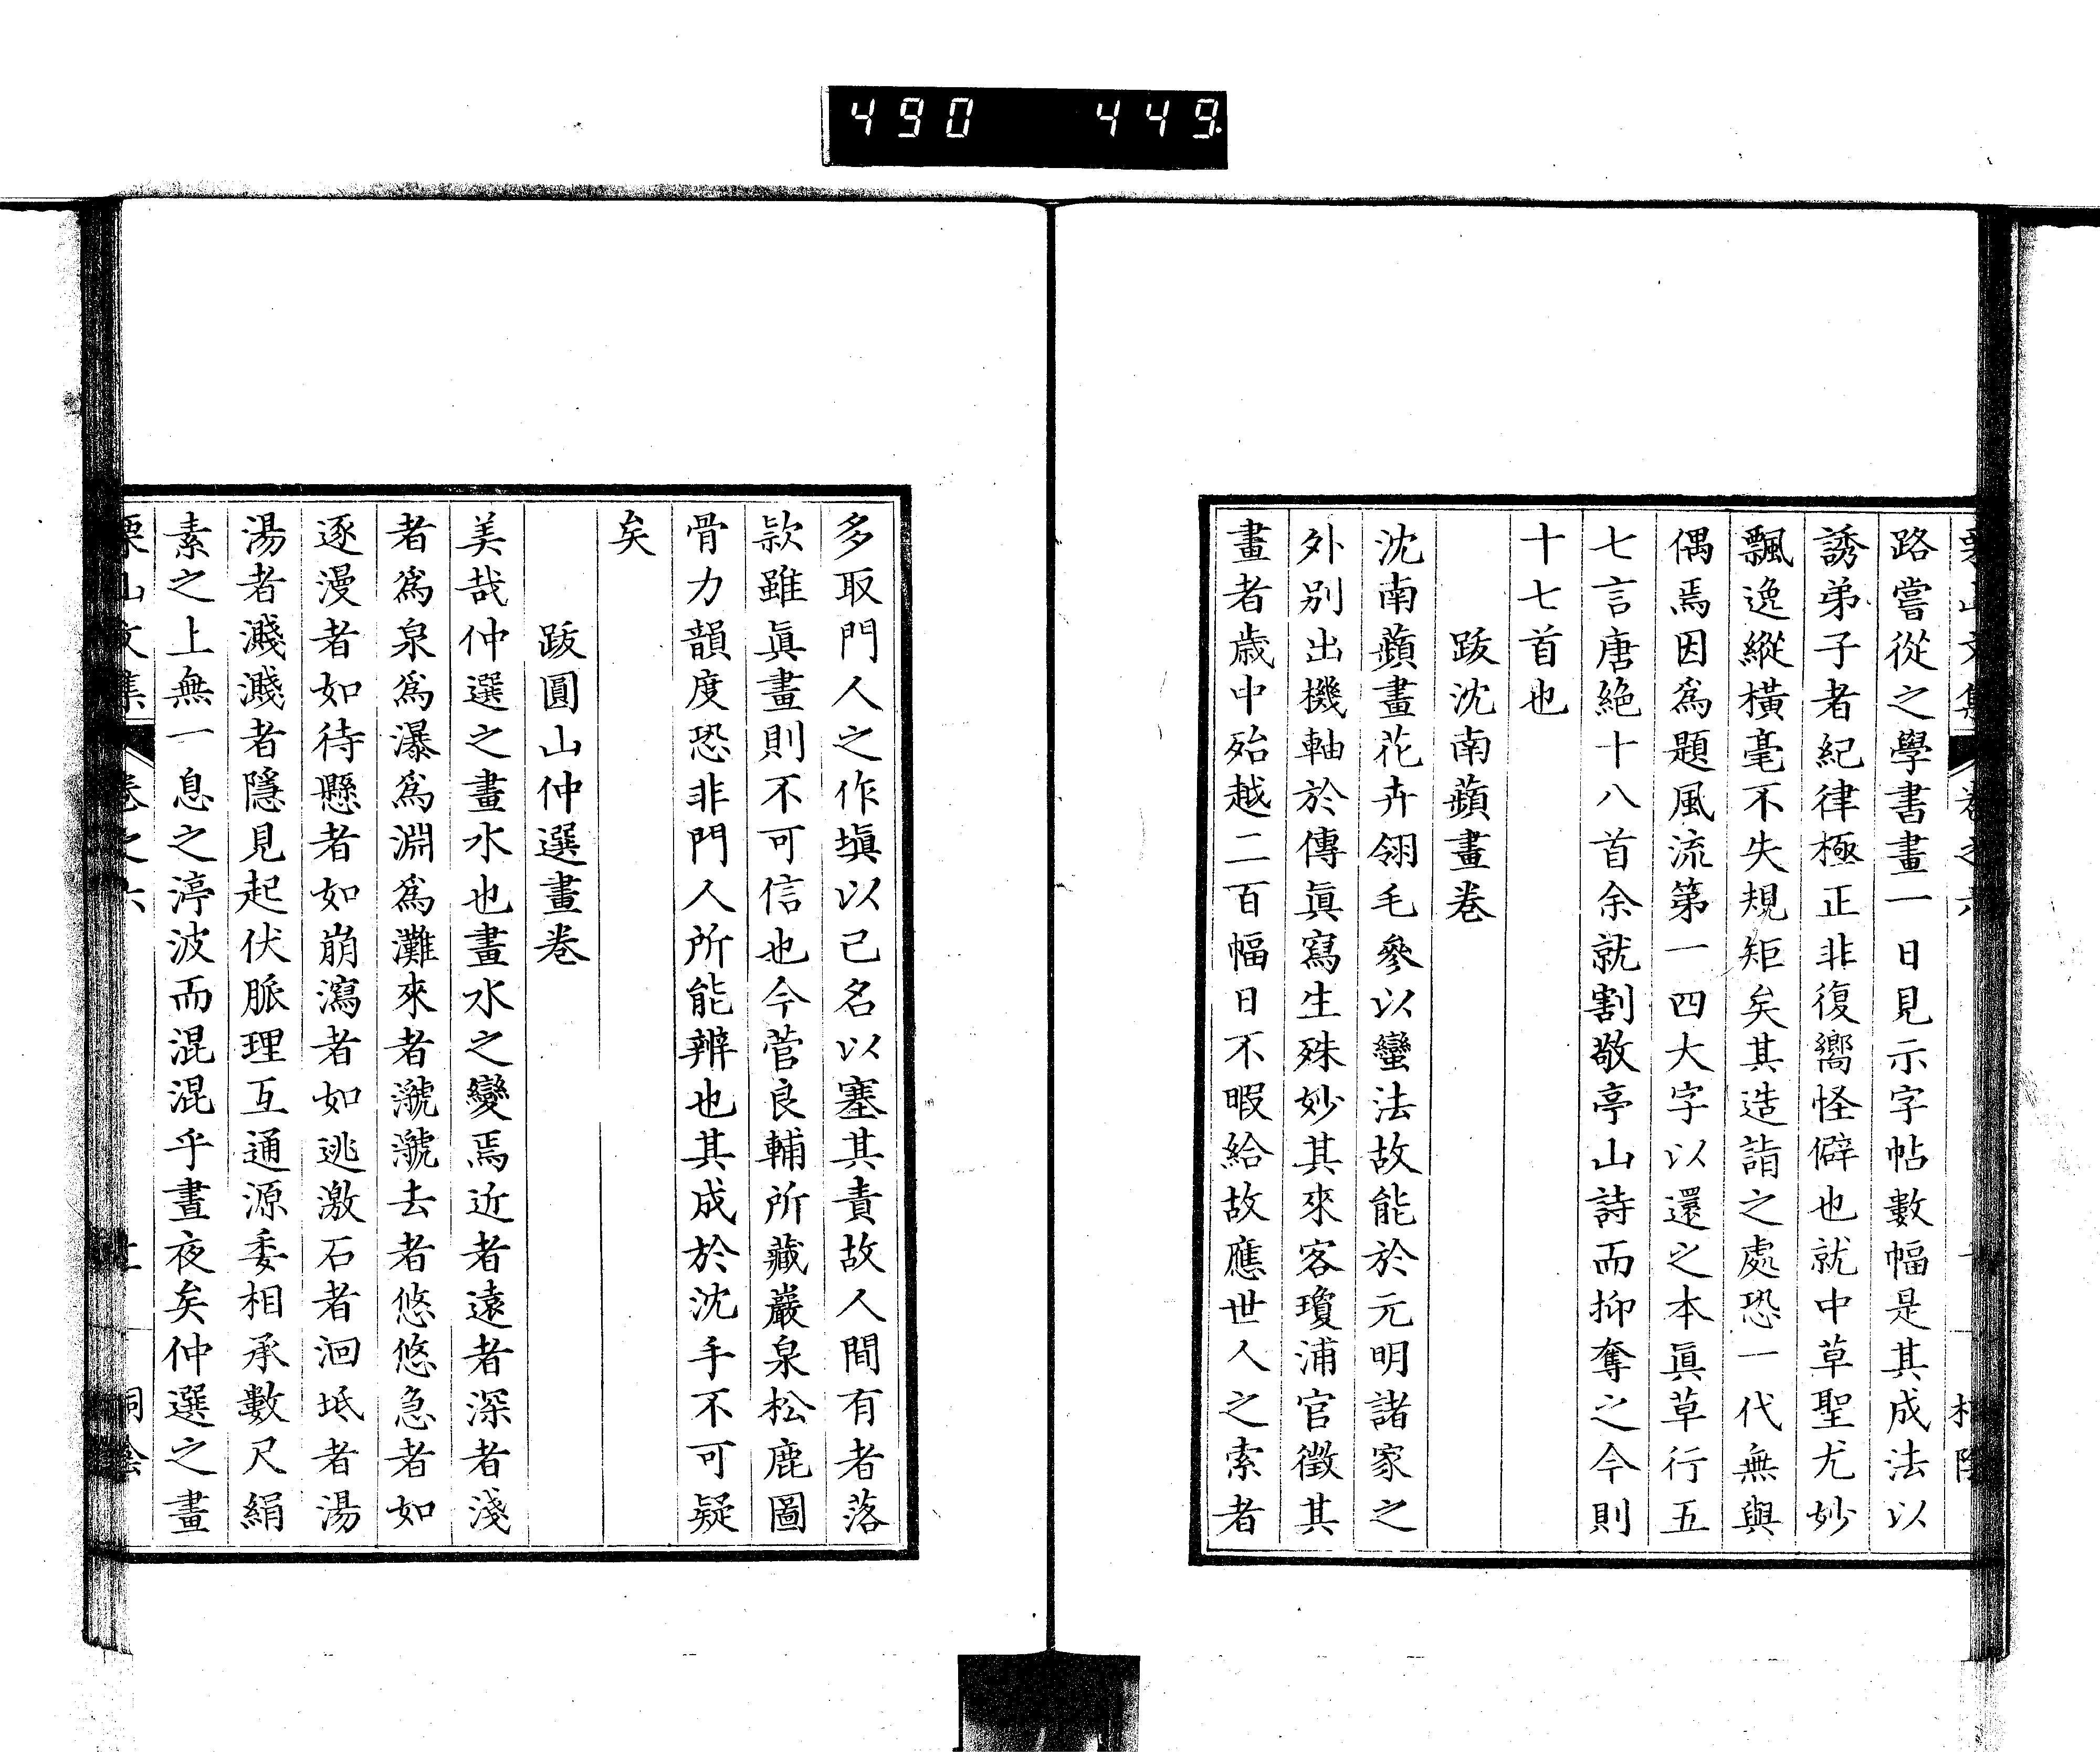 490 449
栗山文集 卷之六
路嘗從之學書畫一日見示字帖數幅是其成法以
誘弟子者紀律極正非復嚮怪僻也就中草聖尤妙
飄逸縱橫毫不失規矩矣其造詣之處恐一代無與
偶焉因爲題風流第一四大字以還之本眞草行五
七言唐絶十八首余就割敬亭山詩而抑奪之今則
十七首也
跋沈南蘋畫卷
沈南蘋畫花卉翎毛參以蠻法故能於元明諸家之
外別出機軸於傳眞寫生殊妙其來客瓊浦官徵其
畫者歳中殆越二百幅日不暇給故應世人之索者
多取門人之作塡以己名以塞其責故人間有者落
款雖眞畫則不可信也今菅良輔所藏巖泉松鹿圖
骨力韻度恐非門人所能辨也其成於沈手不可疑
矣
跋圓山仲選畫卷
美哉仲選之畫水也畫水之變焉近者遠者深者淺
者爲泉爲瀑爲淵爲灘來者㶁㶁去者悠悠急者如
逐漫者如待懸者如崩瀉者如逃激石者洄坻者湯
湯者濺濺者隱見起伏脈理互通源委相承數尺絹
素之上無一息之渟波而混混乎晝夜矣仲選之畫
栗山文集 卷之六